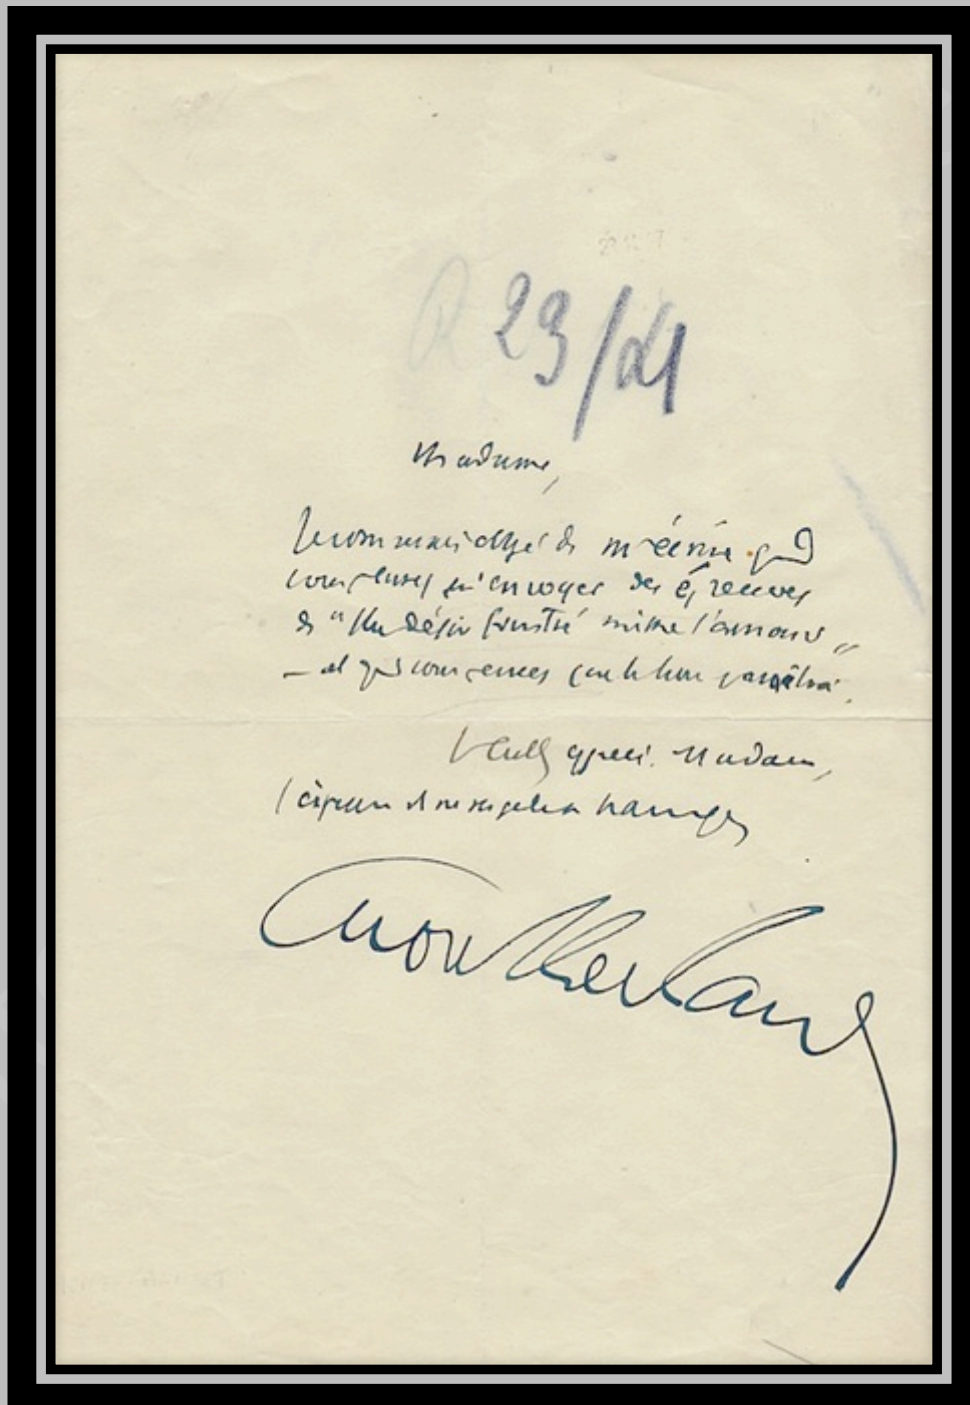 23/21
Madame,
Je vous serais obligé de m'écrire quand
vous pensez m'envoyer des épreuves
de "Un désir frustré mime l'amour"
— et quand vous pensez que le livre paraîtra.
Veuillez agréer, Madame,
l'expression de mes respectueux hommages
Montherlant